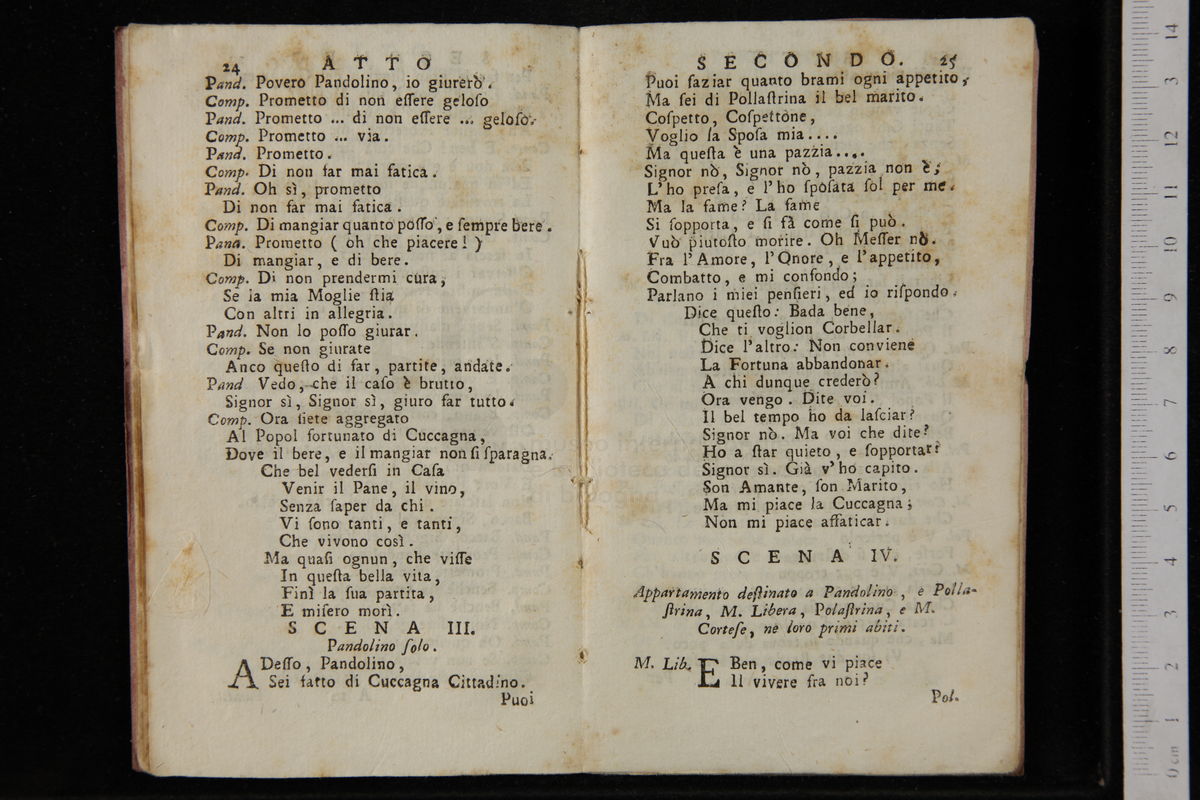 24 ATTO
Pand. Povero Pandolino, io giurerò.
Comp. Prometto di non eſſere geloſo
Pand. Prometto ... di non eſſere ... geloſo.
Comp. Prometto ... via.
Pand. Prometto.
Comp. Di non far mai fatica.
Pand. Oh sì, prometto
Di non far mai fatica.
Comp. Di mangiar quanto poſſo, e ſempre bere.
Pand. Prometto ( oh che piacere! )
Di mangiar, e di bere.
Comp. Di non prendermi cura,
Se la mia Moglie ſtia
Con altri in allegria.
Pand. Non lo poſſo giurar.
Comp. Se non giurate
Anco queſto di far, partite, andate.
Pand Vedo, che il caſo è brutto,
Signor sì, Signor sì, giuro far tutto.
Comp. Ora ſiete aggregato
Al Popol fortunato di Cuccagna,
Dove il bere, e il mangiar non ſi ſparagna.
Che bel vederſi in Caſa
Venir il Pane, il vino,
Senza ſaper da chi.
Vi ſono tanti, e tanti,
Che vivono così.
Ma quaſi ognun, che viſſe
In queſta bella vita,
Finì la ſua partita,
E miſero morì.
SCENA III.
Pandolino ſolo.
ADeſſo, Pandolino,
Sei fatto di Cuccagna Cittadino.
Puoi
SECONDO. 25
Puoi ſaziar quanto brami ogni appetito,
Ma ſei di Pollaſtrina il bel marito.
Coſpetto, Coſpettone,
Voglio la Spoſa mia....
Ma queſta è una pazzia....
Signor nò, Signor nò, pazzia non è;
L'ho preſa, e l'ho ſpoſata ſol per me.
Ma la fame? La fame
Si ſopporta, e ſi fà come ſi può.
Vuò piutoſto morire. Oh Meſſer nò.
Fra l'Amore, l'Onore, e l'appetito,
Combatto, e mi confondo;
Parlano i miei penſieri, ed io riſpondo.
Dice queſto: Bada bene,
Che ti voglion Corbellar.
Dice l'altro: Non conviene
La Fortuna abbandonar.
A chi dunque crederò?
Ora vengo. Dite voi.
Il bel tempo ho da laſciar?
Signor nò. Ma voi che dite?
Ho a ſtar quieto, e ſopportar?
Signor sì. Già v'ho capito.
Son Amante, ſon Marito,
Ma mi piace la Cuccagna;
Non mi piace affaticar.
SCENA IV.
Appartamento deſtinato a Pandolino, e Polla-
ſtrina, M. Libera, Polaſtrina, e M.
Corteſe, ne loro primi abiti.
M. Lib. EBen, come vi piace
Il vivere fra noi?
Pol.
0 cm 1 2 3 4 5 6 7 8 9 10 11 12 3 14